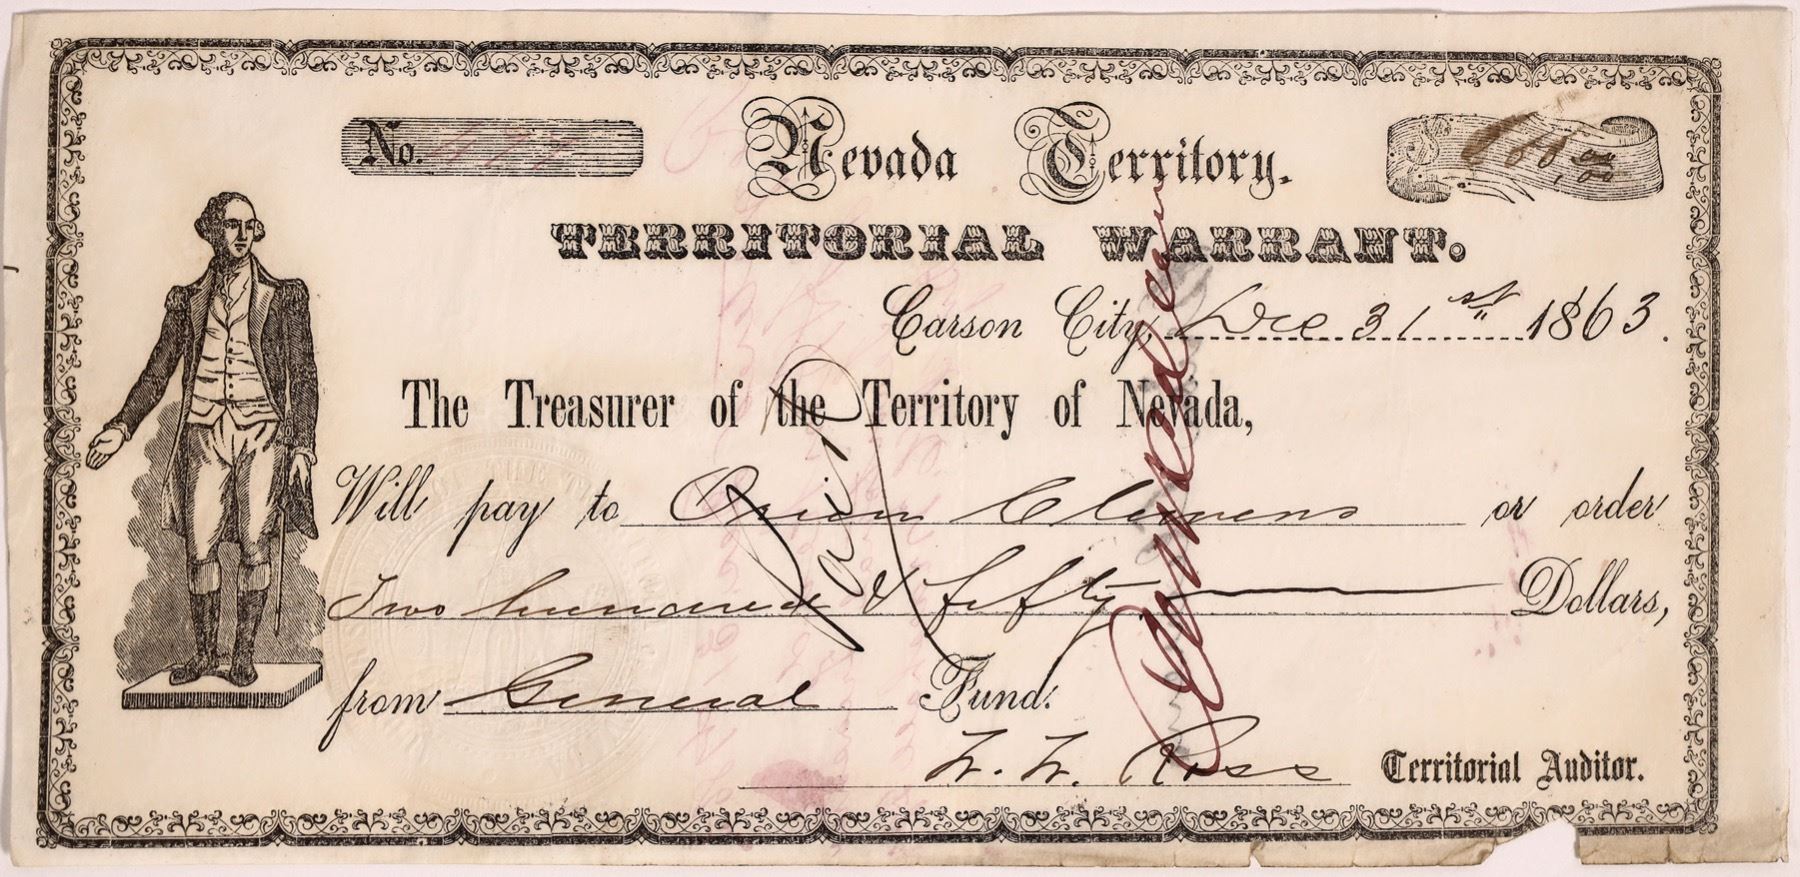 No. 477
Nevada Territory.
TERRITORIAL WARRANT.
Carson City, Dec 31st 1863.
The Treasurer of the Territory of Nevada,
Will pay to Orion Clemens or order
Two hundred & fifty Dollars,
from General Fund.
W. W. Ross Territorial Auditor.
Paid